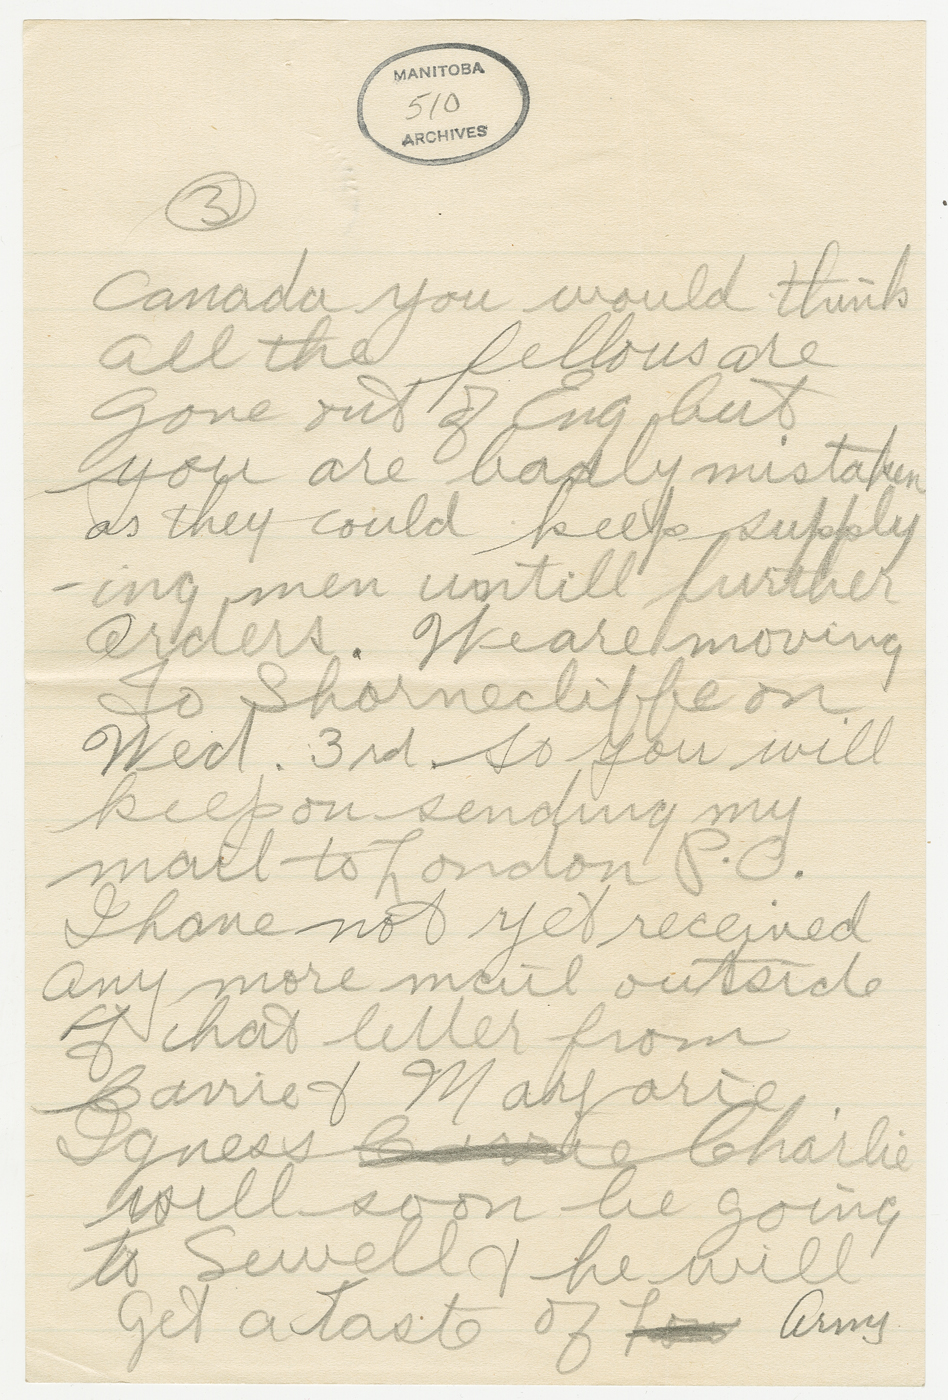 MANITOBA
510
ARCHIVES
3
Canada you would think
all the fellows are
gone out of Eng but
you are badly mistaken
as they could keep supply
-ing men untill further
orders. We are moving
To Shornecliffe on
Wed. 3rd. so you will
keep on sending my
mail to London P.O.
I have not yet received
any more mail outside
of that letter from
Carrie & Marjorie.
I gness Carrie Charlie
will soon be going
to Sewell & he will
get a taste of Army